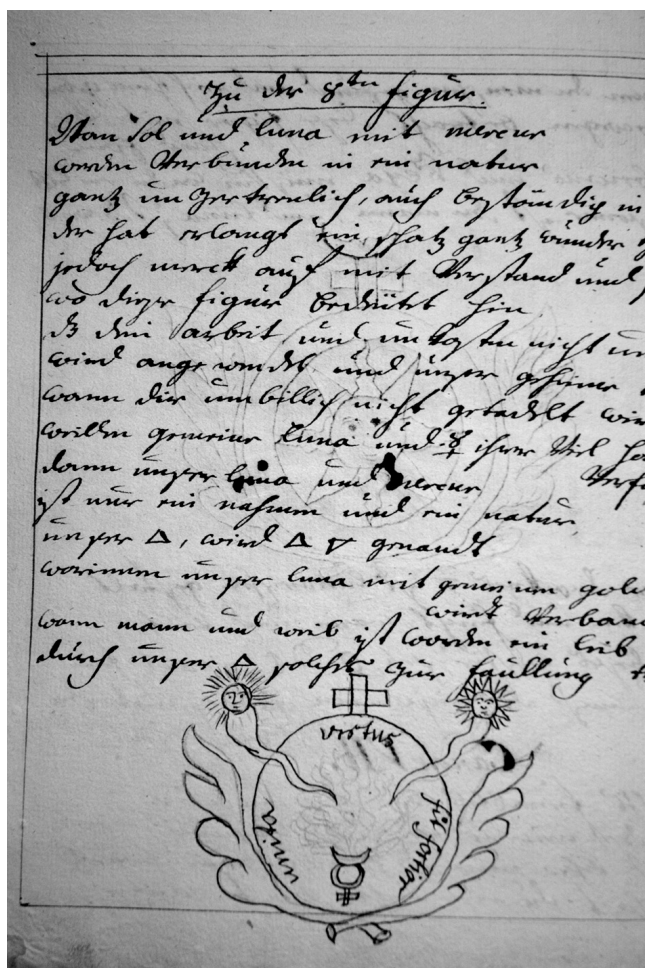 Zu der 8ten figur.
Wan Sol und luna mit mercur
werden Verbunden in ein natur
gantz unzertrenlich, auch beständig in
der hat erlangt ein schatz gantz wunder
jedoch merck auf mit Verstand und
wo dieser figur bedeutet hin
dz dein arbeit und unkosten nicht
wird angewendet und unser geheime
wann dir umbillich nicht getadelt
weillen gemeine luna und ☿ ihrer Viel
dann unser luna und mercur
ist nur ein nahmen und ein natur
unser △, wird △ ▽ genandt
worinnen unser luna mit gemeinem
wird
wann mann und weib ist worden ein leib
durch unser △ solches zur faullung
virtus
unita
fit fortior